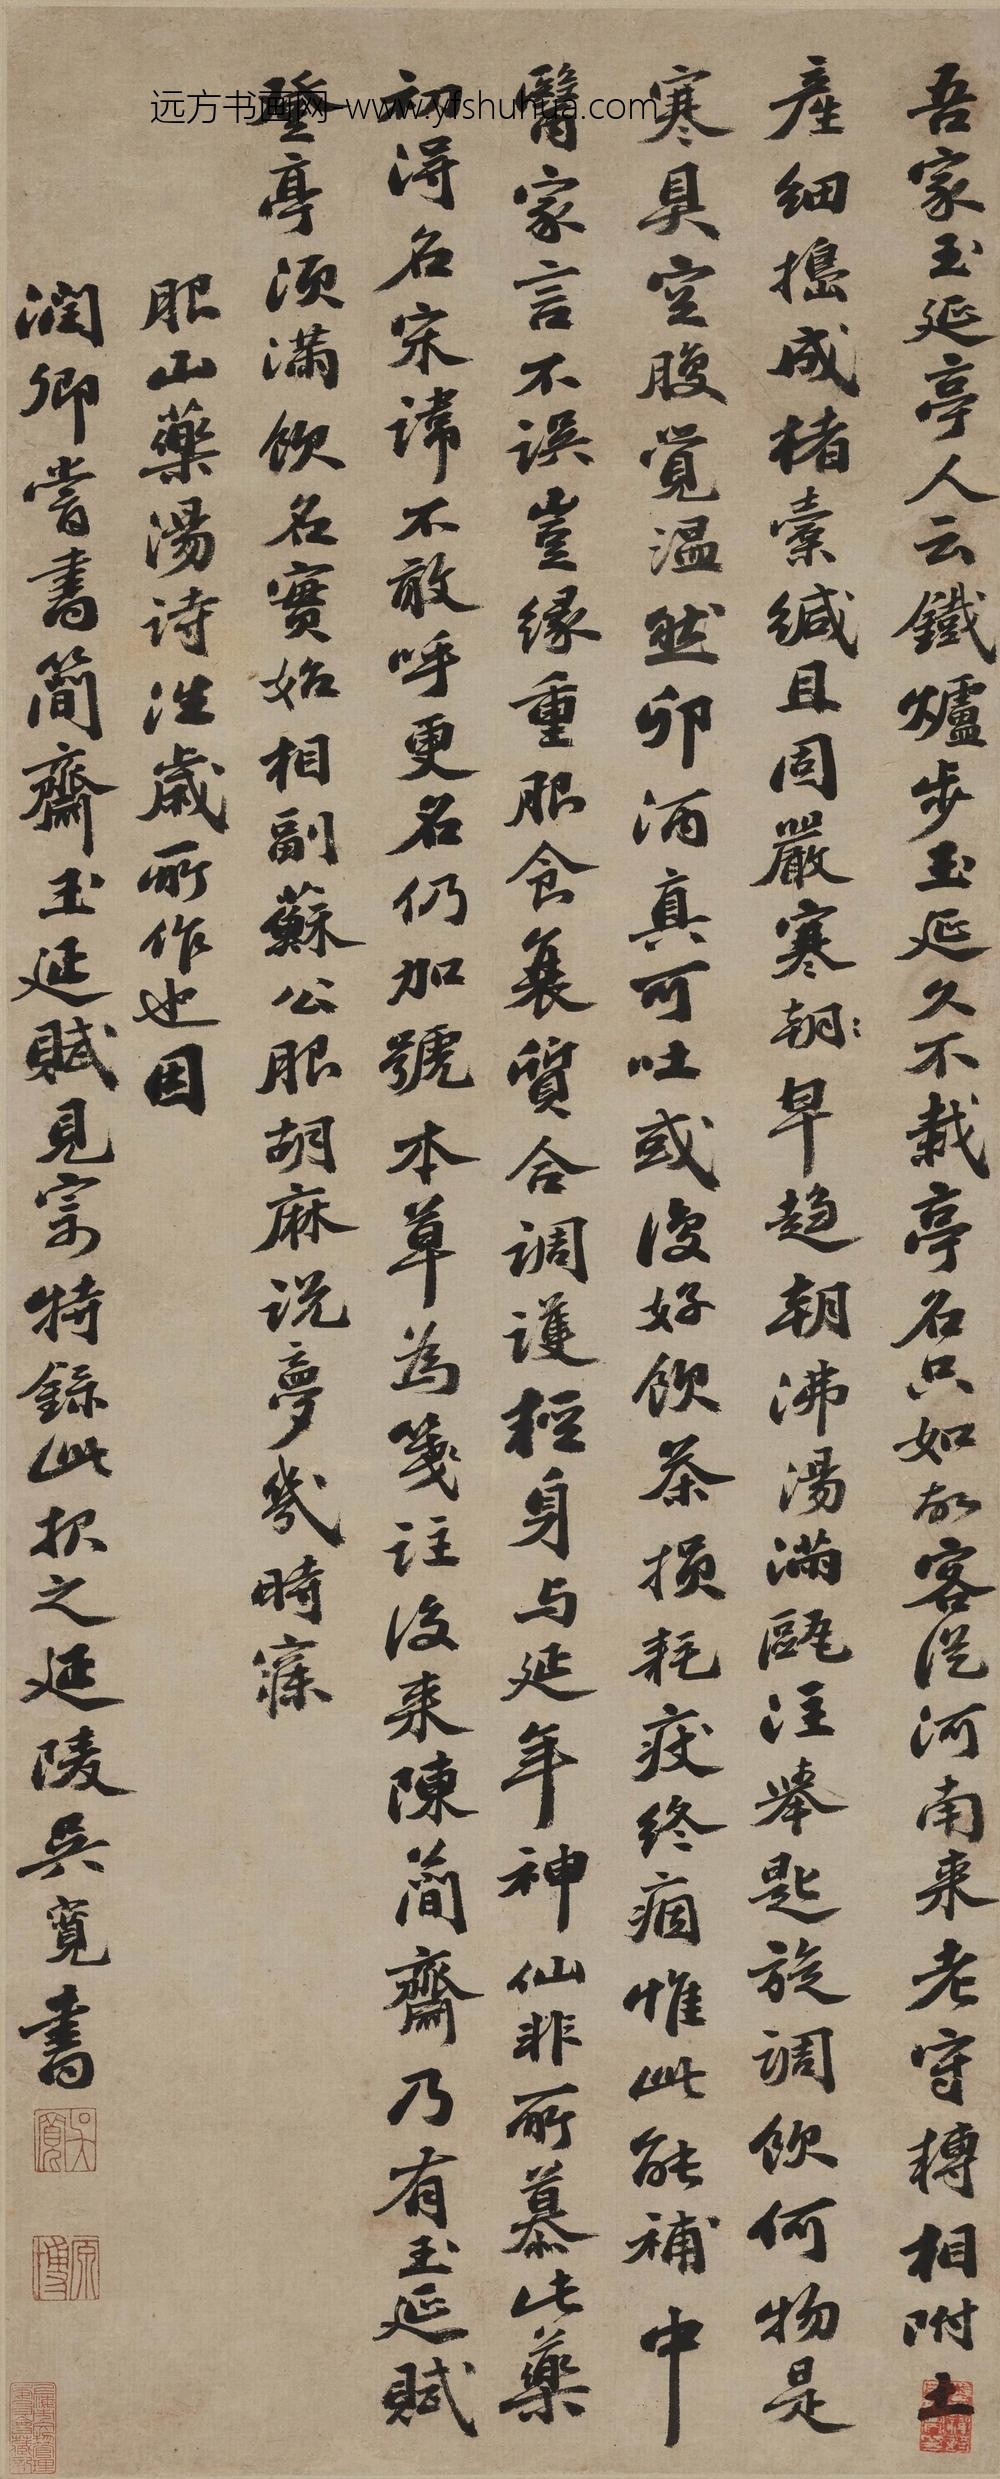 远方书画网-www.yfshuhua.com
吾家玉延亭人云鐵爐步玉延久不栽亭名只如故客從河南来老守摶相附土
産細搗成楮囊緘且固嚴寒朝〻早趋朝沸湯滿甌注舉匙旋調飲何物是
寒具空腹覺温然卯酒真可吐或復好飲茶損耗疾終痼惟此能補中
醫家言不誤豈緣重服食衰質合調護輕身与延年神仙非所慕此藥
初淂名宋諱不敢呼更名仍加號本草為箋註後来陳簡齋乃有玉延賦
登亭須滿飲名實始相副蘇公服胡麻说夢幾時寤
服山藥湯诗往歲所作也因
润卿嘗書簡齋玉延賦見寄特録此报之延陵吴寬書
吴寬
原博